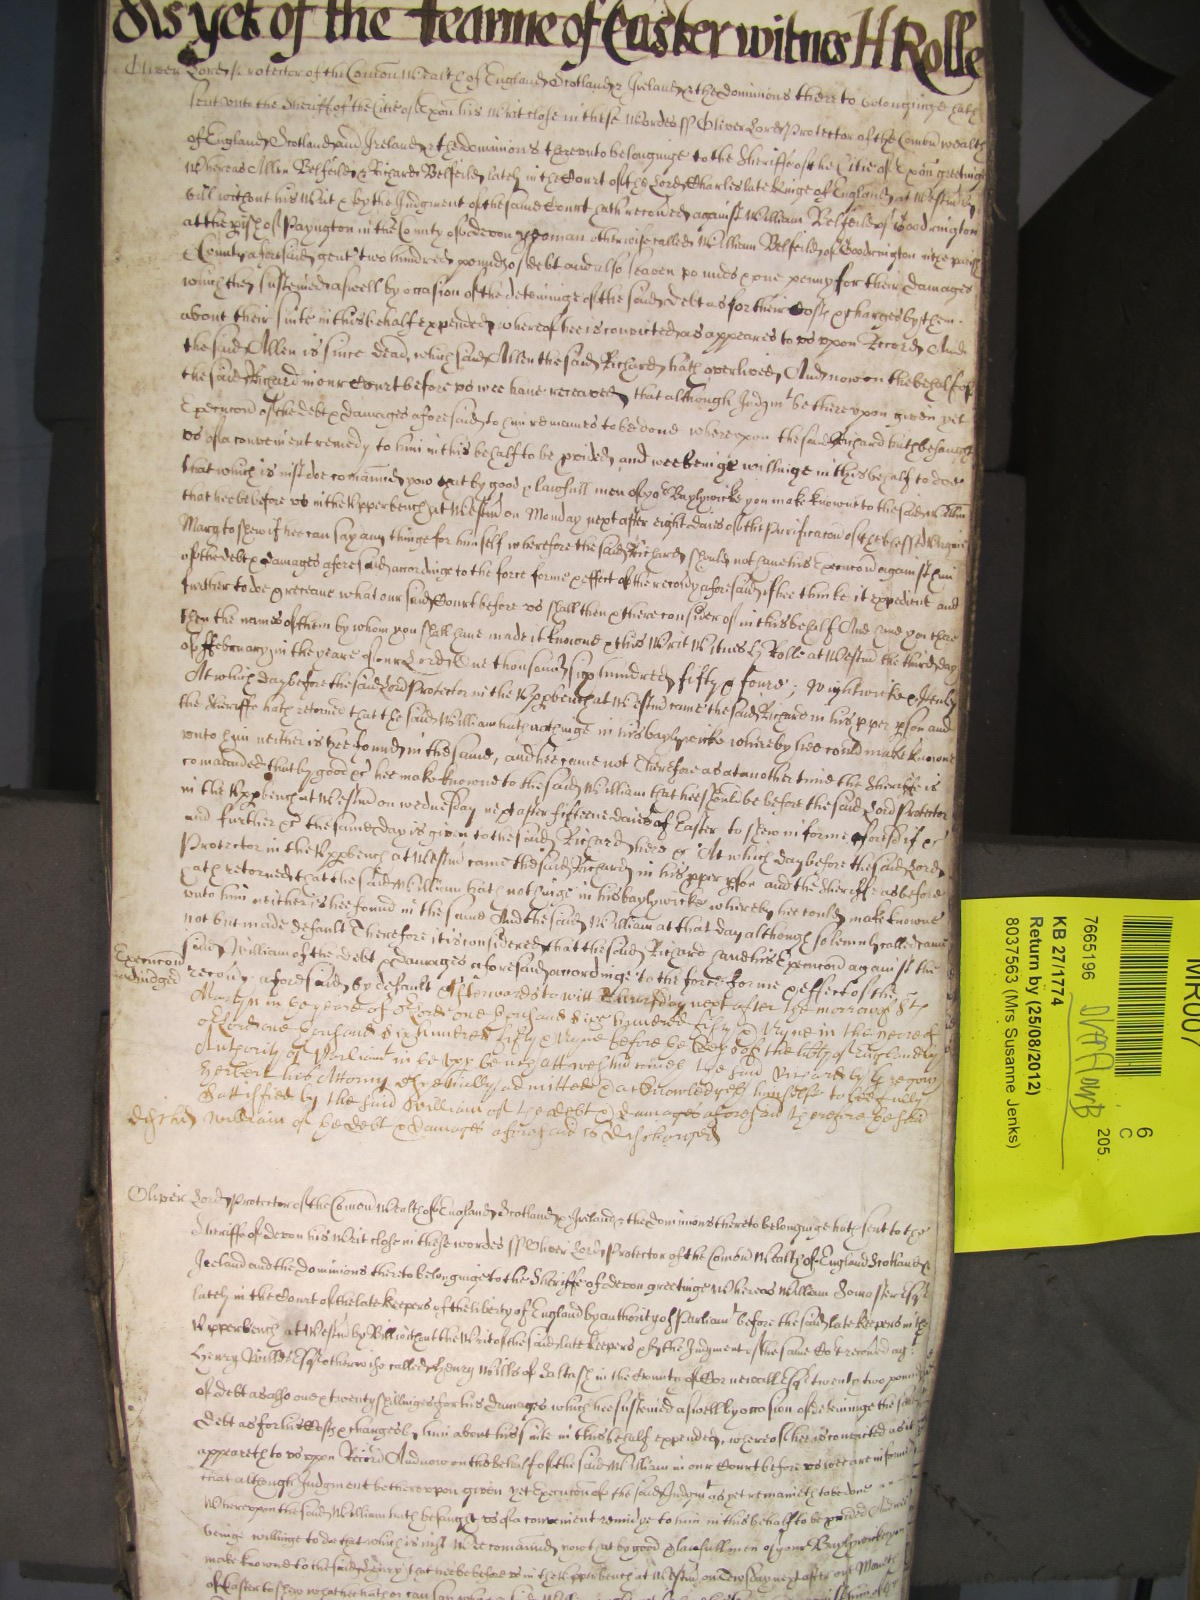 As yet of the tearme of Easter witnes H Rolle
Oliver Lord Protector of the Comon Wealth of England Scotland & Ireland & the dominions there to belonginge hath
sent unto the Sheriff of the Citie of Exon his Writ close in these Wordes ss Oliver Lord Protector of the Comon wealth
of England Scotland and Ireland & the dominions thereunto belonginge to the Sheriffe of the Citie of Exon greetinge
Whereas Allen Belfeild & Richard Belfeild lately in the Court of the Lord Charles late Kinge of England at Westmr by
bill without his Writ & by the Judgment of the same Court hath recoved against William Belfeild of Goodrington
at the pish of Payngton in the County of devon yeoman otherwise called William Belfeild of Goodrington in the parish
& County aforesaid gent two hundred pounds of debt and also seaven pounds & one penny for their damages
which they susteined aswell by occasion of the deteininge of the said debt as for their Costs & charges by them
about their suite in this behalf expended whereof hee is convicted as appeares to us upon Record And
the said Allen is since dead, which said Allen the said Richard hath overlived, And now on the behalf of
the said Richard in our Court before us wee have receaved that although Judgmt be thereupon given yet
Execucon of the debt & damages aforesaid to him remaines to be done whereupon the said Richard hath besought
us of a convenient remedy to him in this behalf to be pvided, and wee beinge willinge in this behalf to doe
that which is iust doe comannd you that by good & lawfull men of yor Baylywicke you make knowne to the said William
that hee be before us in the Upper bench at Westmr on Monday next after eight daies of the Purificacon of the blessed virgin
Mary to shew if hee can say any thinge for himself wherefore the said Richard should not have his Execucon against him
of the debt & damages aforesaid accordinge to the force forme & effect of the record aforesaid if hee thinke it expedient and
further to doe & receave what our said Court before us shall then & there consider of in this behalf And have you there
then the names of them by whom you shall have made it knowne & this Writ Witnes H Rolle at Westmr the third day
of ffebruary in the yeare of our Lord One thousand six hundred fifty & foure ; Wightwicke & Henly
At which day before the said Lord Protector in the Uppbench at Westmr came the said Richard in his pper pson and
the Sheriffe hath retorned that the said William hath nothinge in his baylywicke whereby hee could make knowne
unto him neither is hee found in the same, and hee came not Therefore as at another time the Sheriffe is
comaunded that by good &c hee make knowne to the said William that hee should be before the said Lord Protector
in the Uppbench at Westmr on wednesday next after fifteene daies of Easter to shew in forme aforesd if &c
and further &c the same day is given to the said Richard here &c At which day before the said Lord
Protector in the Uppbench at Westmr came the said Richard in his pper pson and the Sheriffe as before
hath retorned that the said William hath nothinge in his baylywicke whereby hee could make knowne
unto him neither is hee found in the same And the said William at that day although solemnly called came
not but made default Therefore it is considered that the said Richard have his Execucon against the
Execucon adiudged
said William of the debt & damages aforesaid accordinge to the force forme & effect of the
record aforesaid by default & Afterwards to witt Thursday next after the morrowe of St
Martyn in the yeare of or Lord one thousand six hundred fifty & nyne in the
of or Lord one thousand six hundred fifty & nyne before the keepers of the liberty of England by
Authority of Parliamt in the upp bench att westmr came the said Richard by
his Attorny & admitted & acknowledged himself to bee fully
sattisfied by the said William of the debt & damages aforesaid Therefore the said
William of the debt & damages aforesaid is discharged
Oliver Lord Protector of the Comon Wealth of England Scotland & Ireland & the dominions thereto belonginge hath sent to the
Sheriffe of devon his Writ close in these wordes ss Oliver Lord Protector of the Comon Wealth of England Scotland &
Ireland and the dominions thereto belonginge to the Sheriffe of devon greetinge Whereas William Esqr
lately in the Court of the late keepers of the liberty of England by authority of Parliamt before the said late keepers in the
Upperbench at Westmr by Bill without the Writ of the said late keepers & by the Judgment of the same Cort recoved agt
Henry Wills Esqr otherwise called Henry Wills of Saltash in the County of Cornewall Esqr twenty two pounds
of debt as also one & twenty shillinges for his damages which hee susteined aswell by occasion of deteininge the said
debt as for his Costs & charges by him about his suite in this behalf expended, whereof hee is convicted as it
appeareth to us upon Record And now on the behalf of the said William in our Court before us wee are informed
that although Judgment be thereupon given yet Execucon of the said Judgmt as yet remaineth to be done
Whereupon the said William hath besought us of a convenient remidye to him in this behalf to be pvided And wee
beinge willinge to do that which is iust Wee comannd you that by good & lawfull men of your Baylywicke you
make knowne to the said Henry that hee be before us in the Upperbench at Westmr on Tewsday next after one Moneth
of Easter to shew
MR007
7665196
6
C
205.
KB 27/1774
Return by (25/08/2012)
8037563 (Mrs Susanne Jenks)